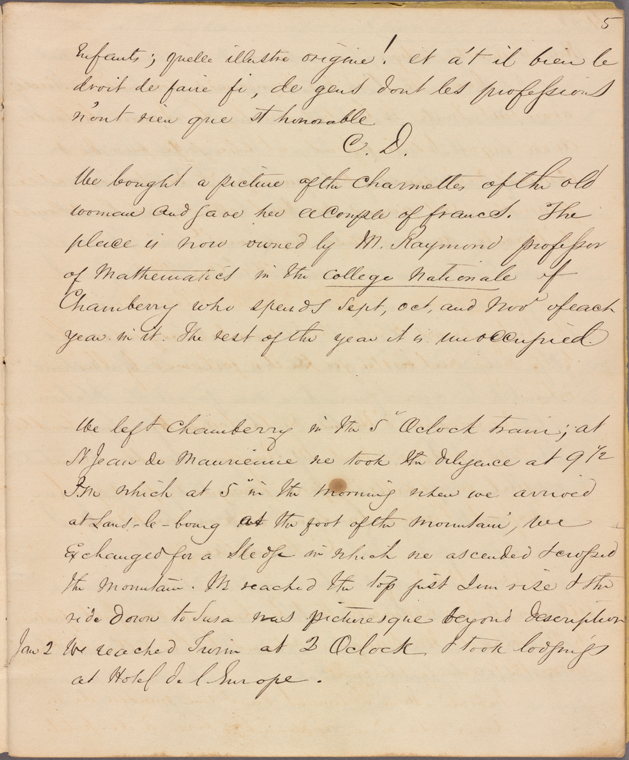 5
Enfants; quelle illustre origine! et a't il bien le
droit de faire fi, de gens dont les professions
n'ont rien que d'honorable
C. D.
We bought a picture of the Charmettes of the old
woman and gave her a couple of francs. The
place is now owned by M. Raymond professor
of Mathematics in the College Nationale of
Chamberry who spends Sept, Oct, and Nov of each
year in it. The rest of the year it is unoccupied.
We left Chamberry in the 5" Oclock train; at
St Jean de Maurienne we took the diligence at 9 1/2
P.M. which at 5" in the morning when we arrived
at Lans-le-bourg at the foot of the mountain, we
Exchanged for a Sledge in which we ascended & crossed
the mountain. We reached the top just Sun rise & the
ride down to Susa was picturesque beyond description
Jan 2 We reached Turin at 2 Oclock & took lodgings
at Hotel de l'Europe.